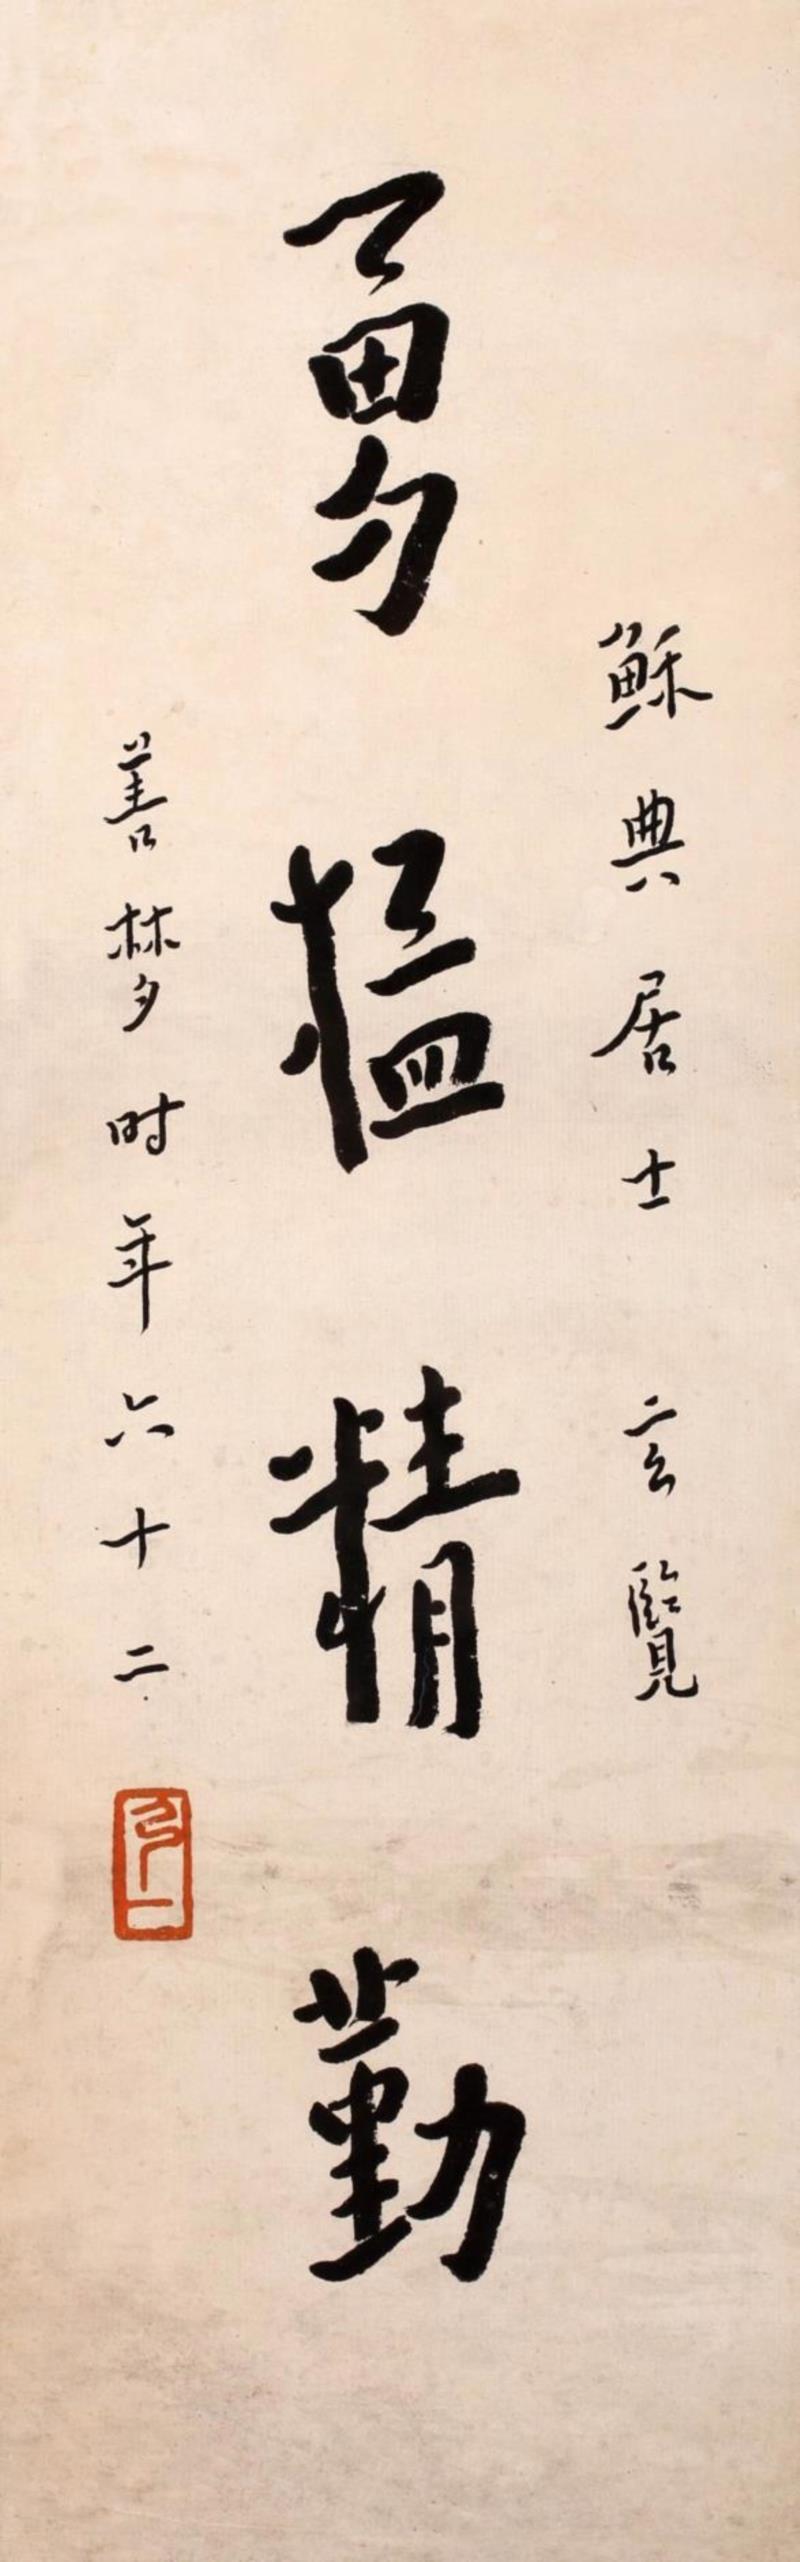 稣典居士 玄覽
勇猛精勤
善梦时年六十二